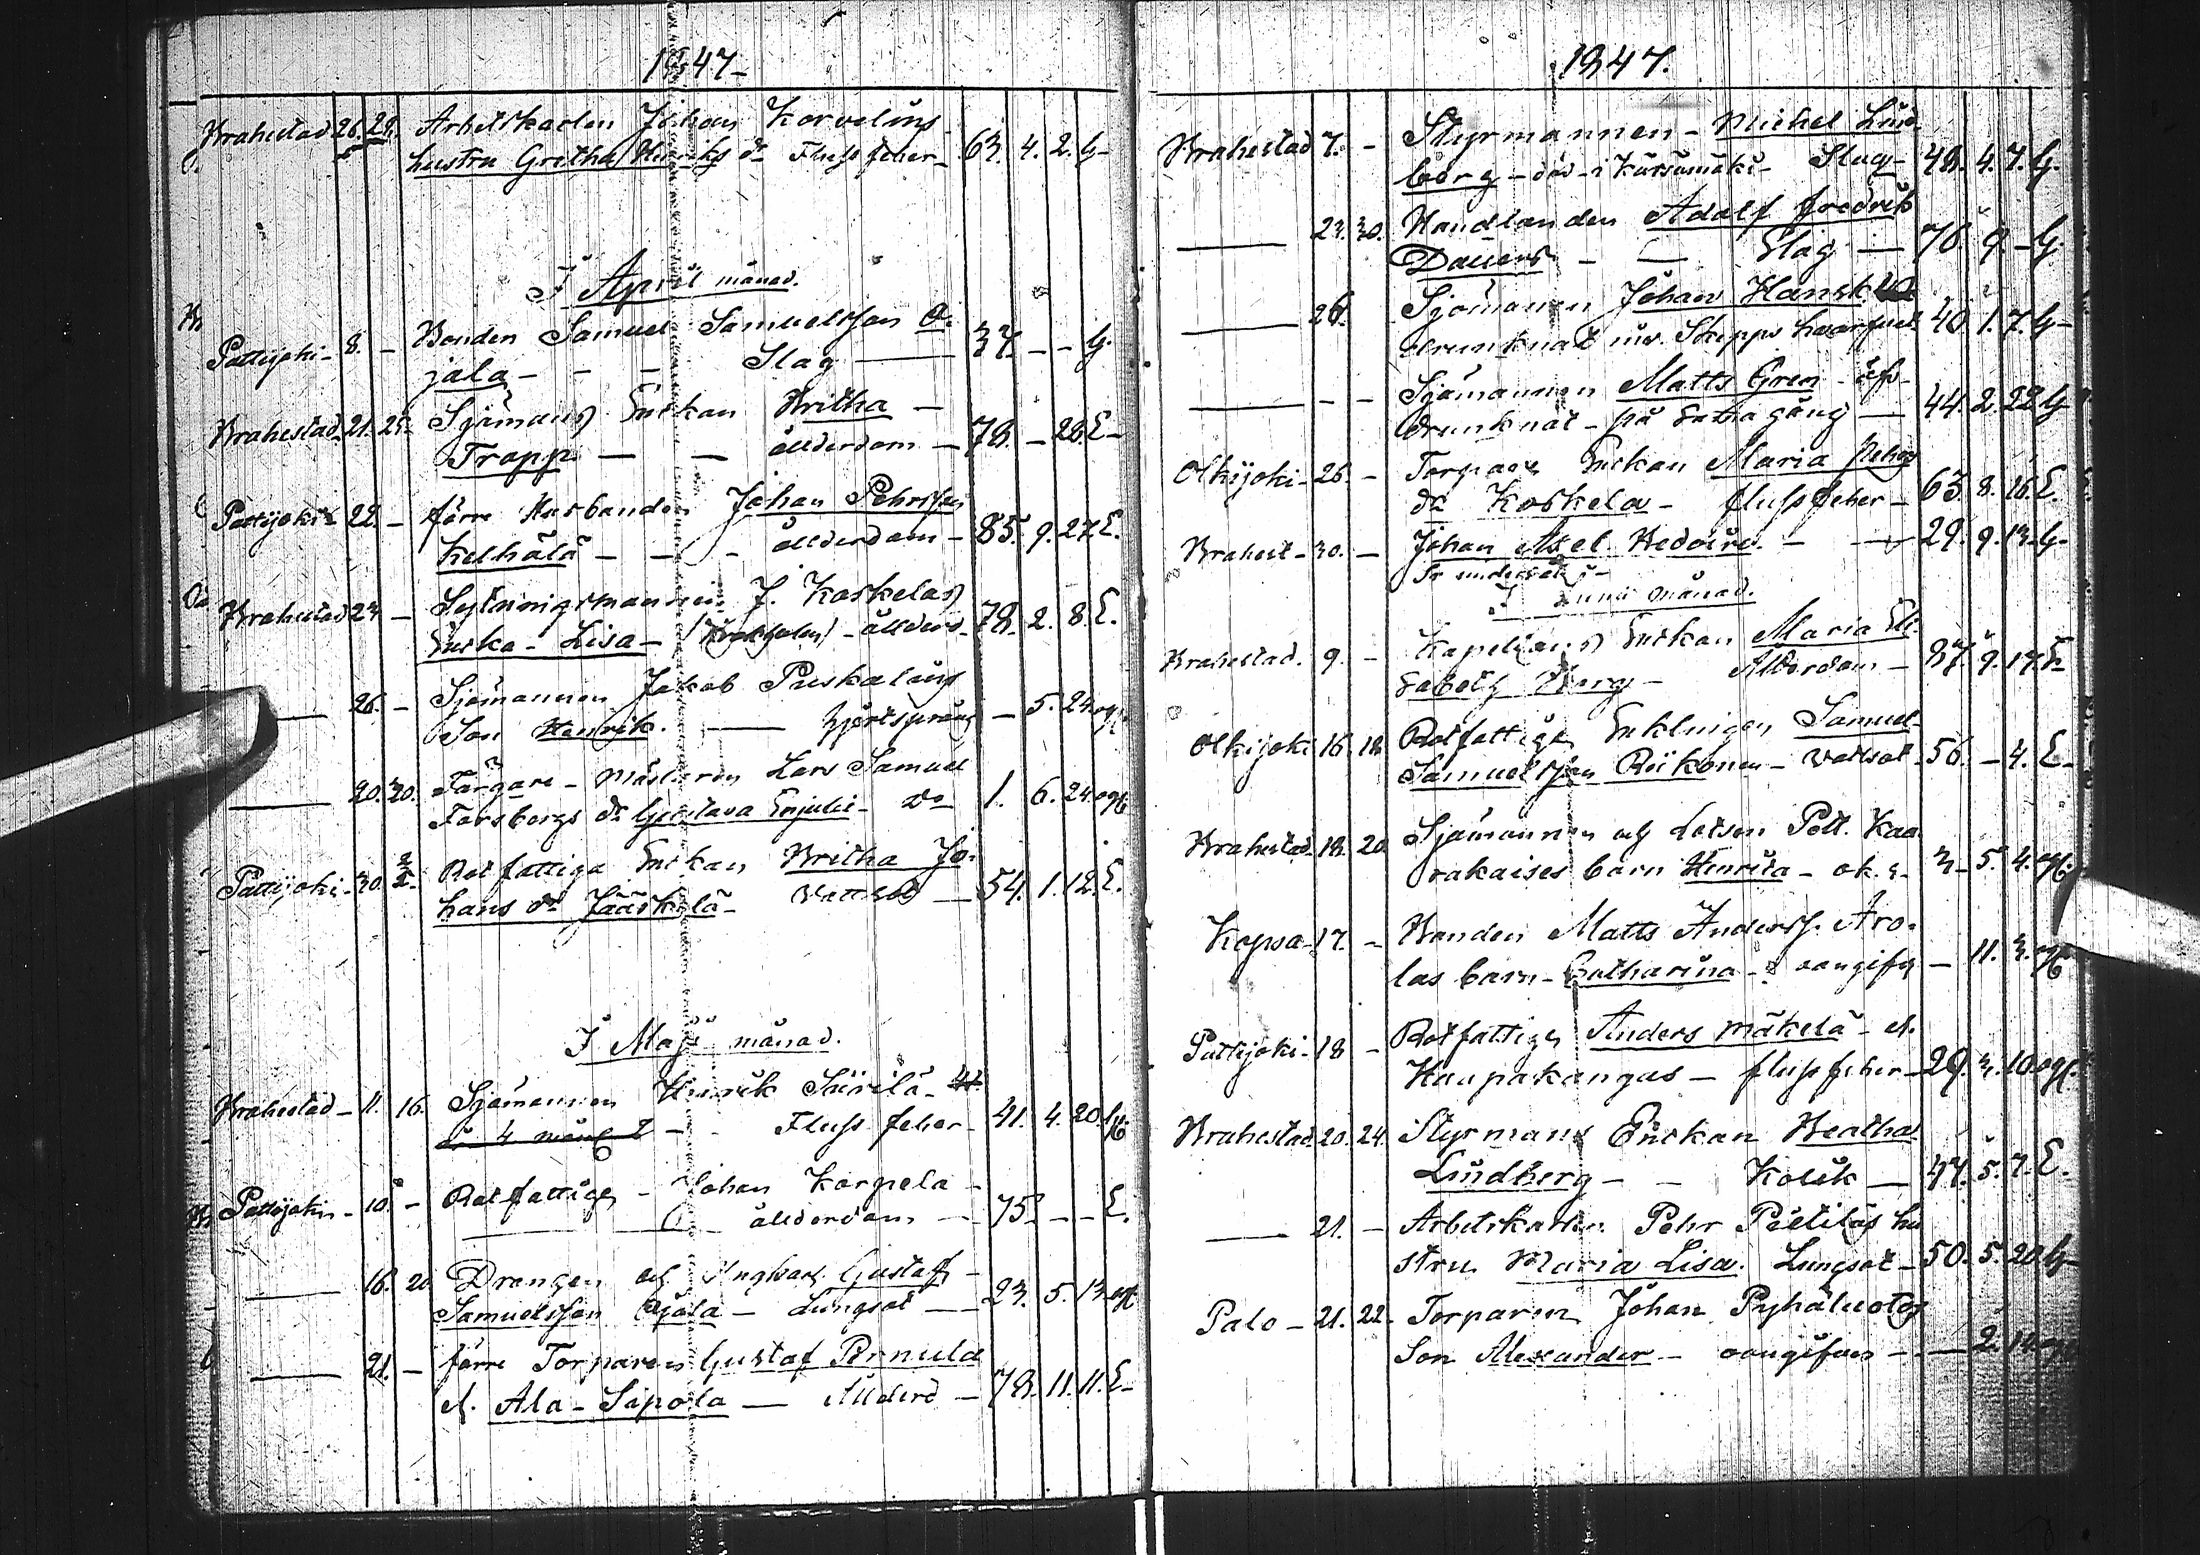 1847-
Brahestad 26. 28. Arbetskarlen Johan Korvelins
hustru Gretha Henriks dr Flussfeber - 63. 4. 2. G-
I April månad.
Pattijoki - 8. - Bonden Samuel Samuelsson O-
jala - - - Slag - 37. - - G.
Brahestad 21. 25. Sjömans Enkan Britha -
Trapp - - ållderdom - 78. - 28. E-
Pattijoki 22. - förre Husbonden Johan Pehrsson
Kelhälä - - - ållderdom - 85. 9. 27. E.
Brahestad 24 - Sytningsmannen J. Koskelas
Enka - Lisa - - ållderd - 78. 2. 8. E.
26. - Sjömannen Jakob Puskalas
Son Henrik. - hjertsprång - 5. 24 ogf.
20. 30. Färgare - mästaren Lars Samuel
Forsbergs dr Gustava Emjulie - do 1. 6. 24 ogf
Pattijoki - 30. Rotfattiga Enkan Britha Jo-
hans dr Jääskelä - Vattsot - 54. 1. 12. E.
I Maji månad.
Brahestad - 11. 16. Sjömannen Henrik Siirilä -
- - Fluss feber - 41. 4. 20. G
Pattijoki - 10. - Rotfattige - Johan Korpela -
ållderdom - 75. - - E.
16. 20 Drängen och Ynglingen Gustaf -
Samuelsson Ojala - Lungsot - 23. 5. 13 ogf
21. - förre Torparen Gustaf Pernula
A. Ala - Sipola - Ållderd - 78. 11. 11. E-
1847.
Brahestad 7. - Styrmannen - Michel Lind-
berg - död i Kärsämäki - Slag - 48. 4. 7. G.
23. 30. Handlanden Adolf Fredrik
- Slag - 76. 9. - G.
26. Sjömannen Johan Hansk
drunknat 40. 1. 7. G-
- - Sjömannen Matts Gren -
drunknat - på 44. 2. 22 G
Olkijoki - 26. - Torpare Enkan Maria Pehrs
dr Koskela - flussfeber - 63. 8. 16. E.
Brahest - 30. - Johan Axel - 29. 9. 13. G-
I Junii månad.
Brahestad. 9. - Kapellans Enkan Maria Eli-
sabeth Berg - Ålderdom - 87. 9. 17. E-
Olkijoki 16. 18. Rotfattige Enklingen Samuel
Samuelsson Riikonen - Vattsot - 56. - 4. E.
Brahestad - 18. 20 Sjömannen och Lotsen Pett. Kaa-
rakaises barn Henrica - ok. s- 3 - 5. 4. ogf.
Kopsa - 17. - Bonden Matts Anderss. Aro-
las barn - Catharina - oangifv - 11. 3. ogf
Pattijoki - 18 - Rotfattige Anders Mäkelä - A.
Haapakangas - flussfeber - 29. 3. 10. ogf.
Brahestad - 20. 24. Styrmans Enkan Beatha
Lindberg - - Kolik - 47. 5. 7. E.
21. - Arbetskarlen Pehr Pietiläs hu
stru Maria Lisa. Lungsot - 50. 5. 20 G-
Palo - 21. 22. Torparen Johan Pyhäluotos
Son Alexander - oangifven - - 2. 14.